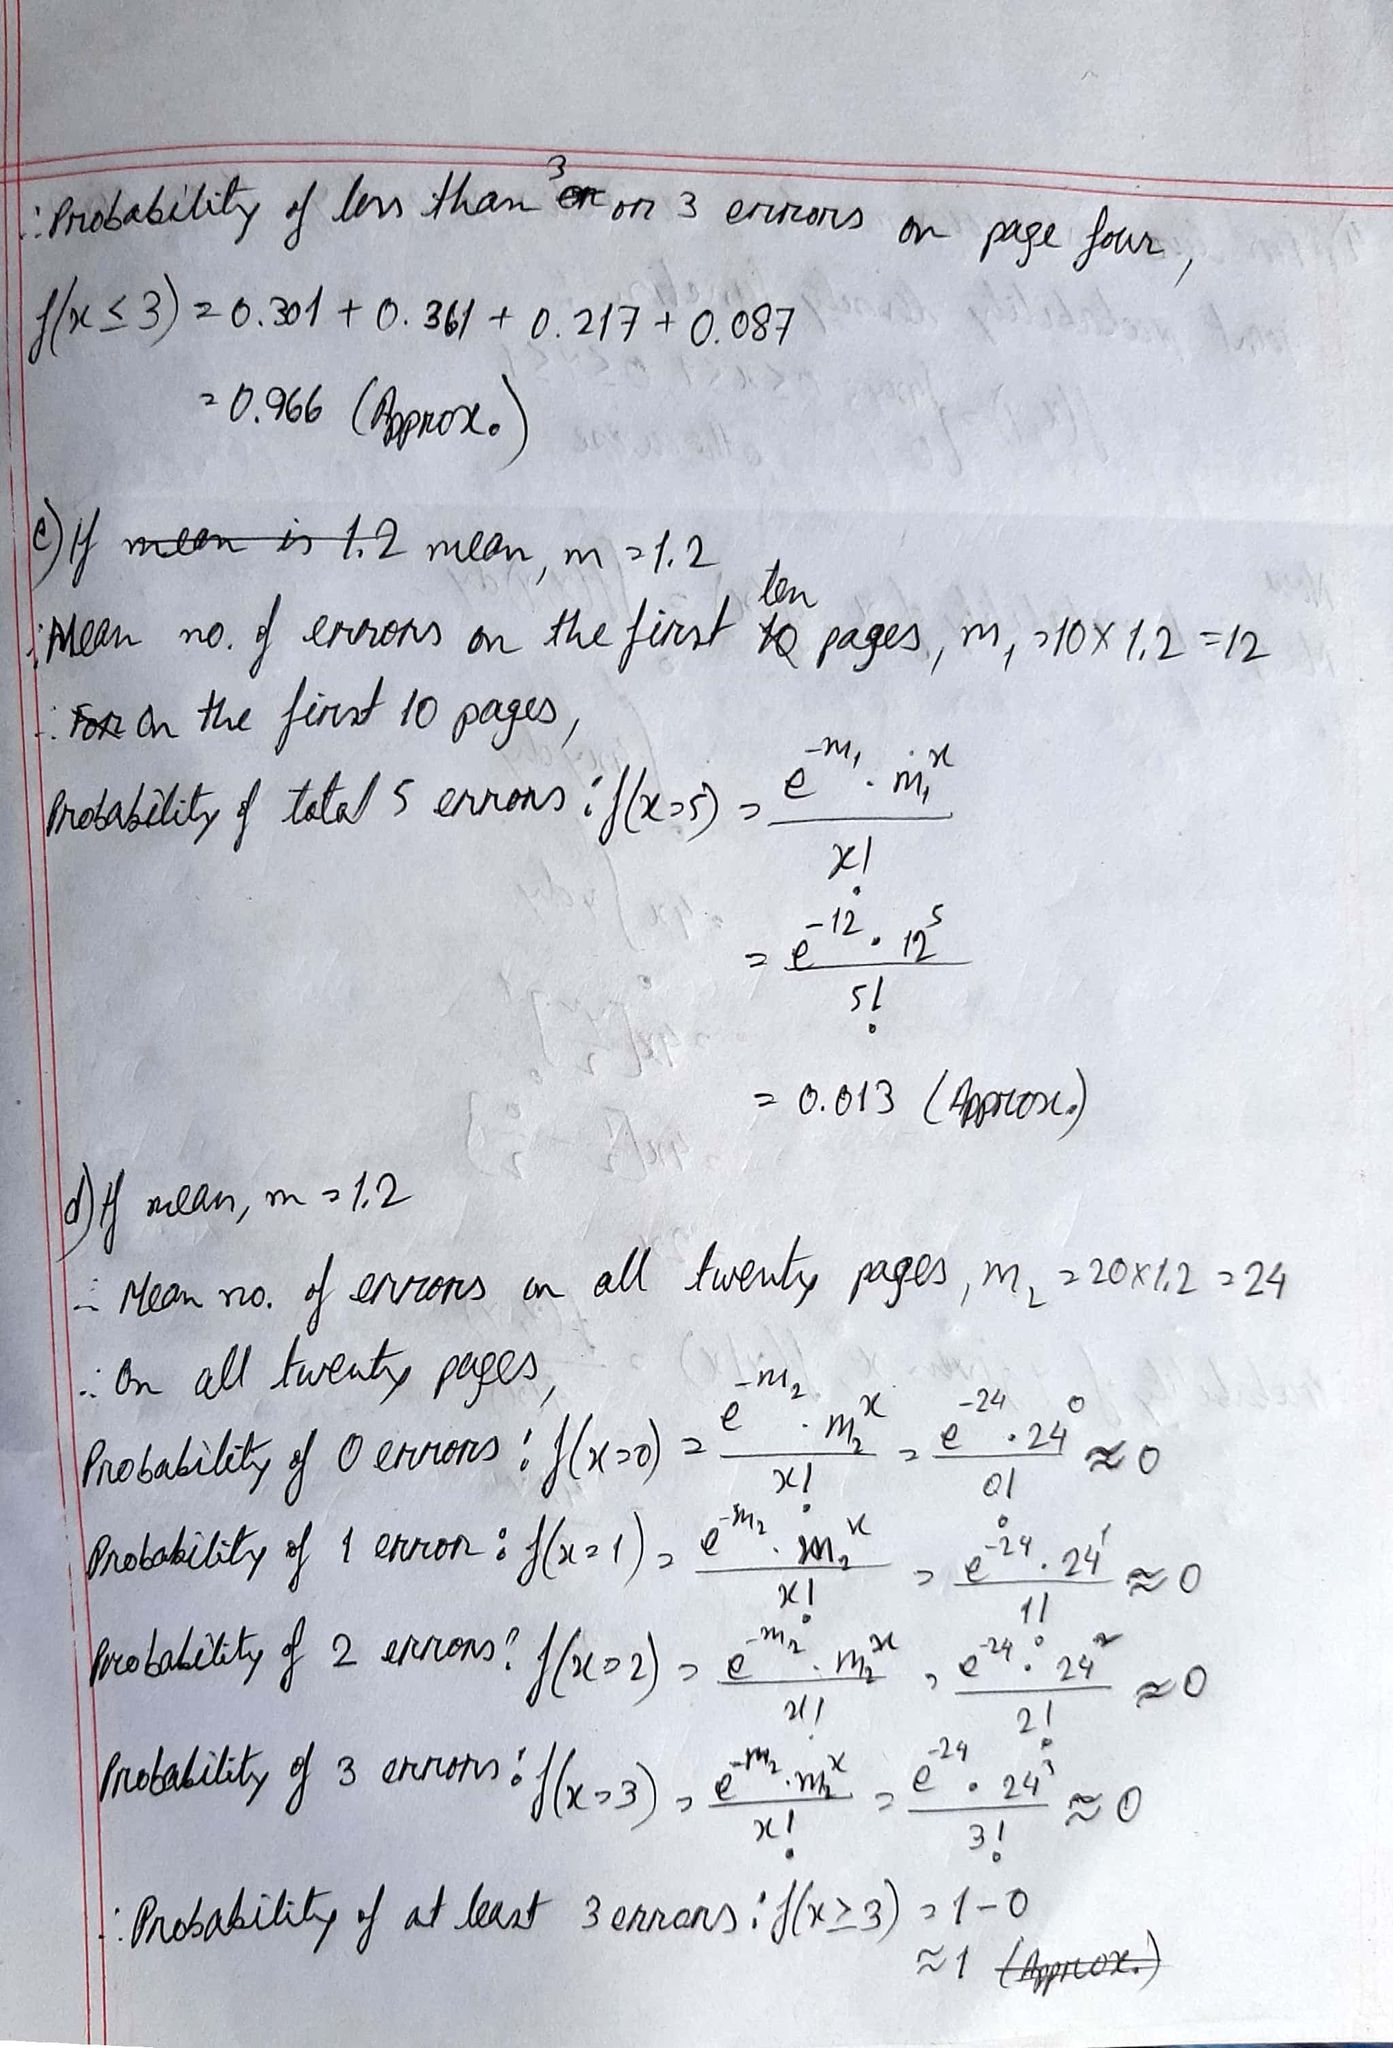 ∴ Probability of less than 3 or 3 errors on page four,
f(x ≤ 3) = 0.301 + 0.361 + 0.217 + 0.087
= 0.966 (Approx.)
c) If mean is 1.2 mean, m = 1.2
∴ Mean no. of errors on the first ten pages, m₁ = 10 × 1.2 = 12
∴ For On the first 10 pages,
Probability of total 5 errors : f(x=5) = (e^(-m₁) . m₁^x) / x!
= (e^(-12) . 12^5) / 5!
= 0.013 (Approx.)
d) If mean, m = 1.2
∴ Mean no. of errors on all twenty pages, m₂ = 20×1.2 = 24
∴ On all twenty pages,
Probability of 0 errors : f(x=0) = (e^(-m₂) . m₂^x) / x! = (e^(-24) . 24^0) / 0! ≈ 0
Probability of 1 error : f(x=1) = (e^(-m₂) . m₂^x) / x! = (e^(-24) . 24^1) / 1! ≈ 0
Probability of 2 errors : f(x=2) = (e^(-m₂) . m₂^x) / x! = (e^(-24) . 24^2) / 2! ≈ 0
Probability of 3 errors : f(x=3) = (e^(-m₂) . m₂^x) / x! = (e^(-24) . 24^3) / 3! ≈ 0
∴ Probability of at least 3 errors : f(x ≥ 3) = 1 - 0
≈ 1 (Approx.)